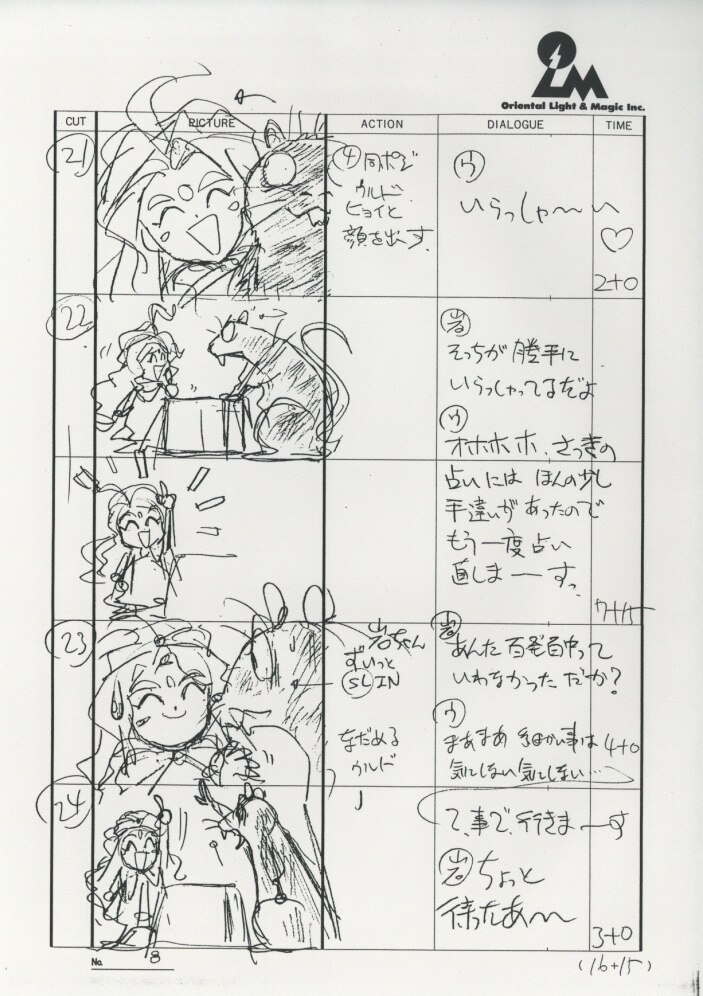 OLM
Oriental Light & Magic Inc.
CUT PICTURE ACTION DIALOGUE TIME
21
④同ポジ
ウルド
ヒョイと
顔を出す
ウ
いらっしゃ〜い♡
2+0
22
岩
そっちが勝手に
いらっしゃってるだよ
ウ
オホホホ、さっきの
占いには ほんの少し
手違いがあったので
もう一度占い
直しま──すっ
7+15
23
岩ちゃん
ずいっと
SL IN
なだめる
ウルド
岩
あんた百発百中って
いわなかっただか?
ウ
まあまあ 細かい事は
気にしない気にしない…
4+0
24
て、事で、行きま──す
岩
ちょっと
待ったあ〜〜
3+0
No. 8
(16+15)